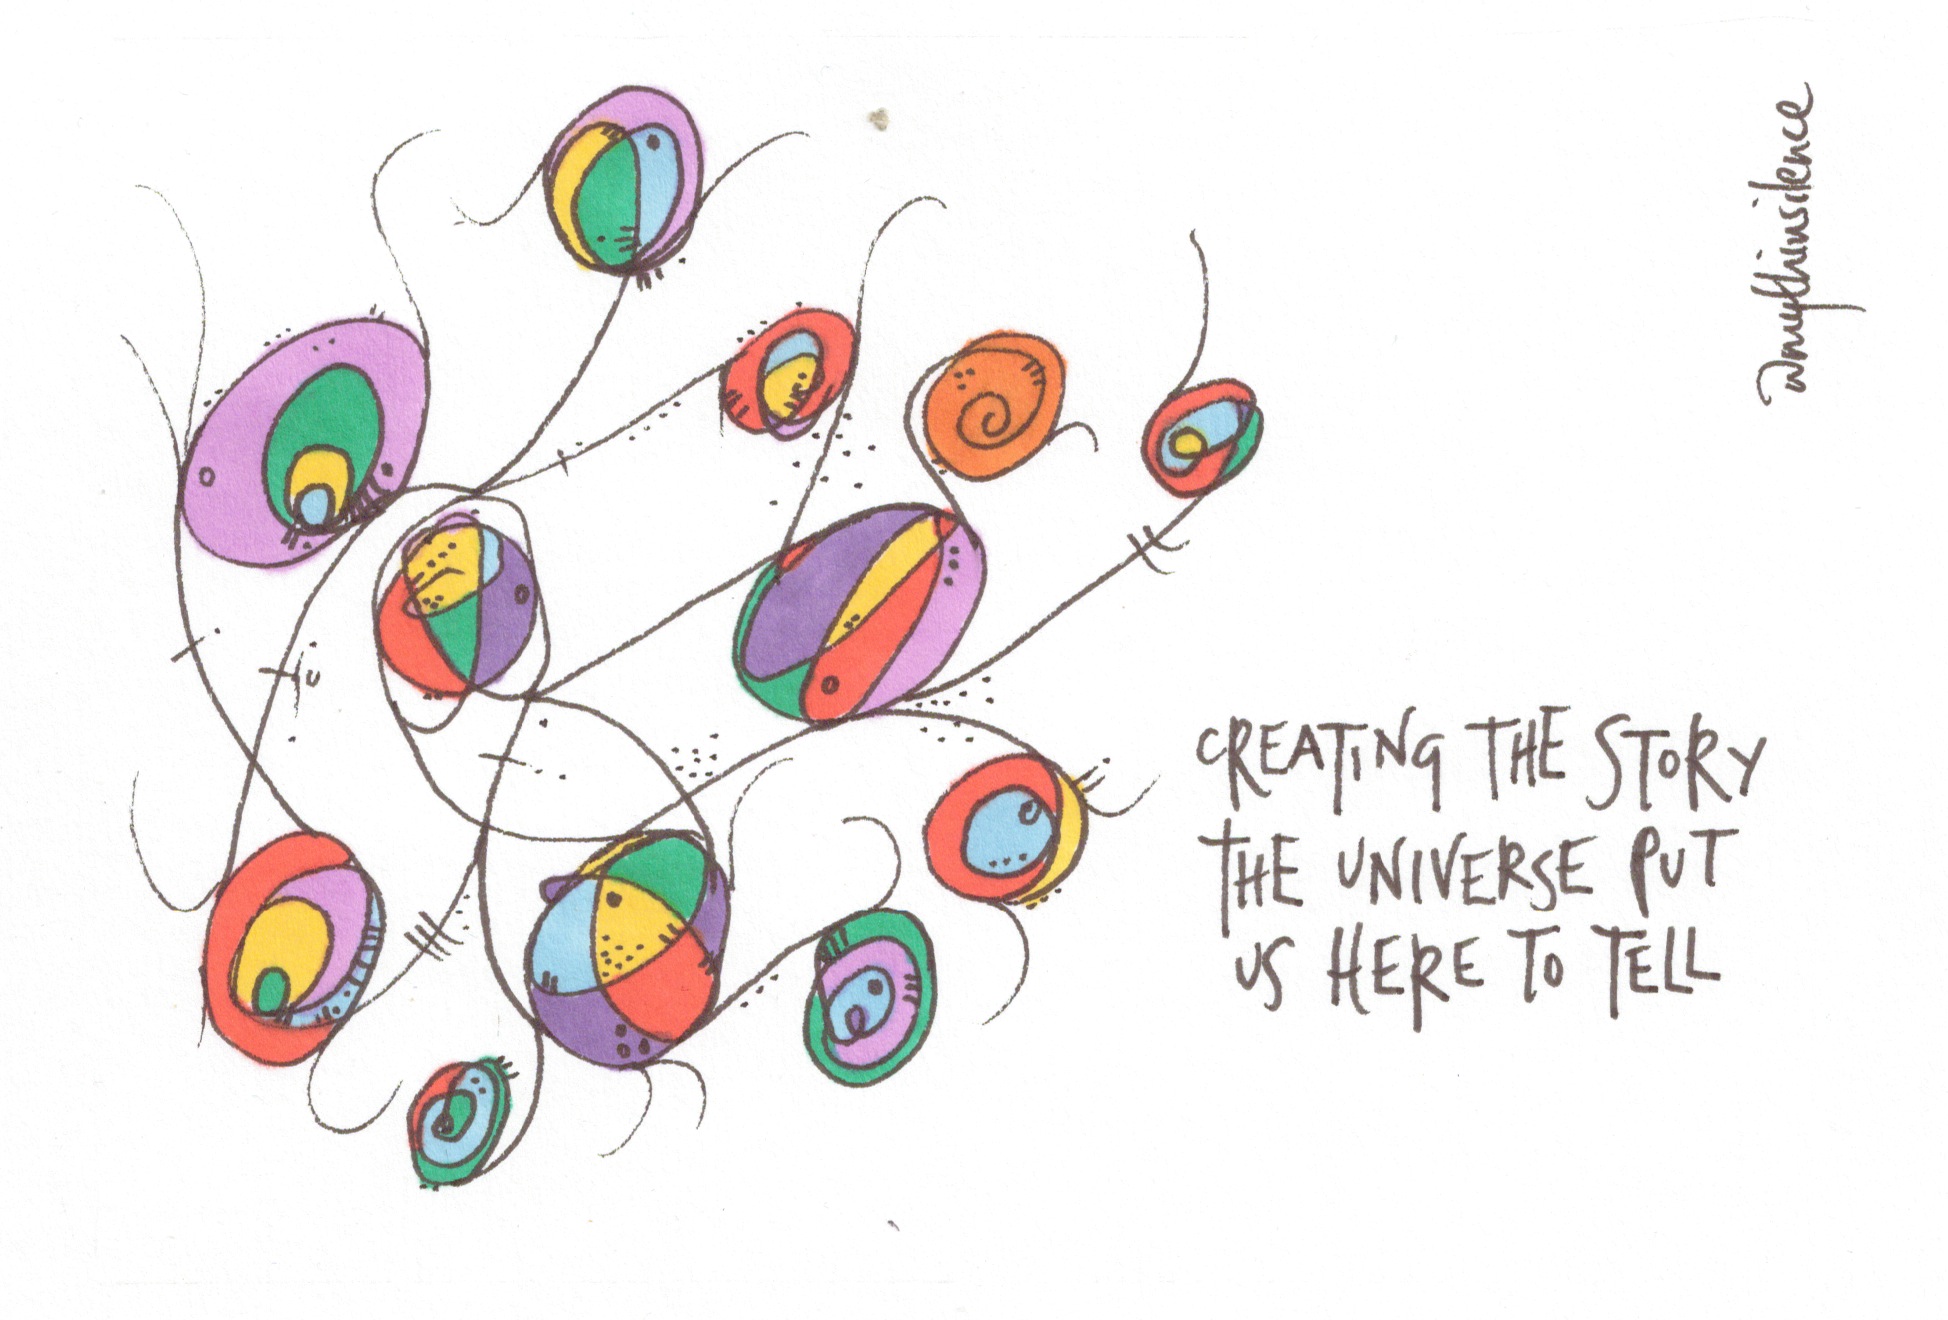 CREATING THE STORY
THE UNIVERSE PUT
US HERE TO TELL